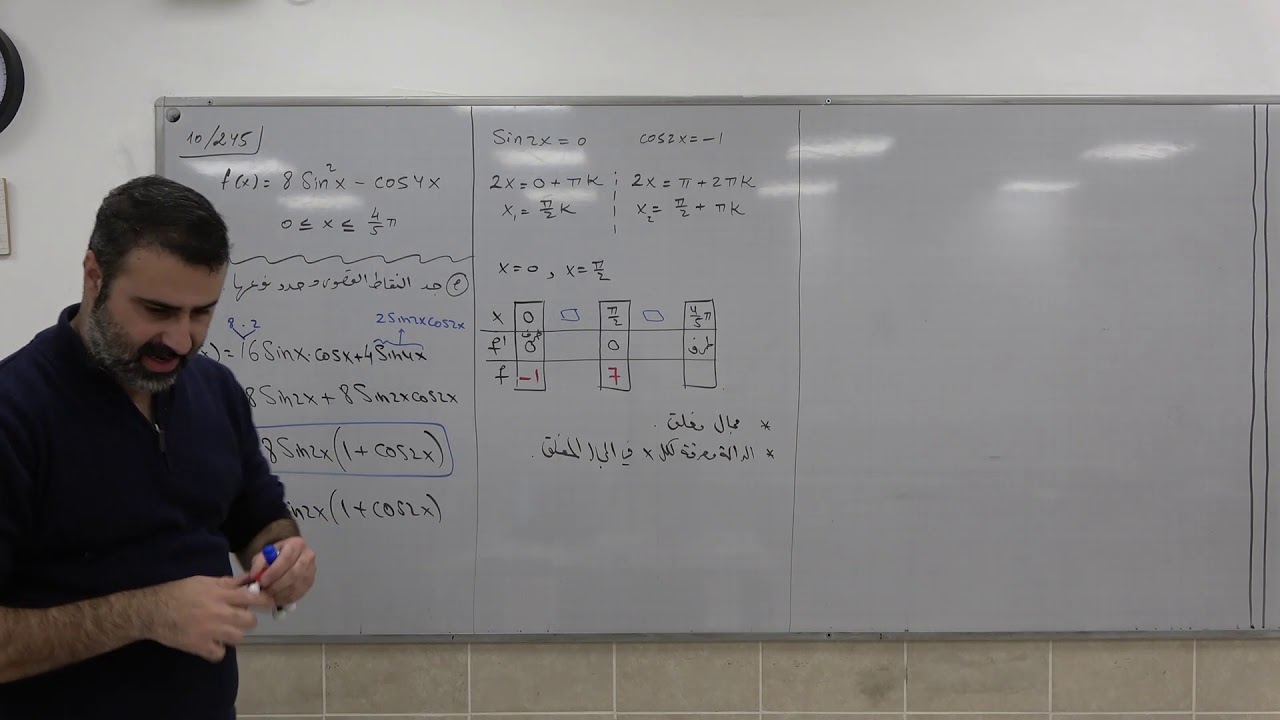 10/245
f(x) = 8 Sin²x − cos4x
0 ≤ x ≤ 4/5 π
جد النقاط القصوى وحدد نوعها
8·2
2Sin2xcos2x
x) = 16Sinx·cosx + 4Sin4x
8Sin2x + 8Sin2xcos2x
8Sin2x(1 + cos2x)
in2x(1 + cos2x)
Sin2x = 0 cos2x = −1
2x = 0 + πk 2x = π + 2πk
x₁ = π/2 k x₂ = π/2 + πk
x = 0 , x = π/2
x 0 π/2 4/5 π
f' طرف 0 0 طرف
f −1 7
* مجال مغلق .
* الدالة معرفة لكل x في المجال المغلق .